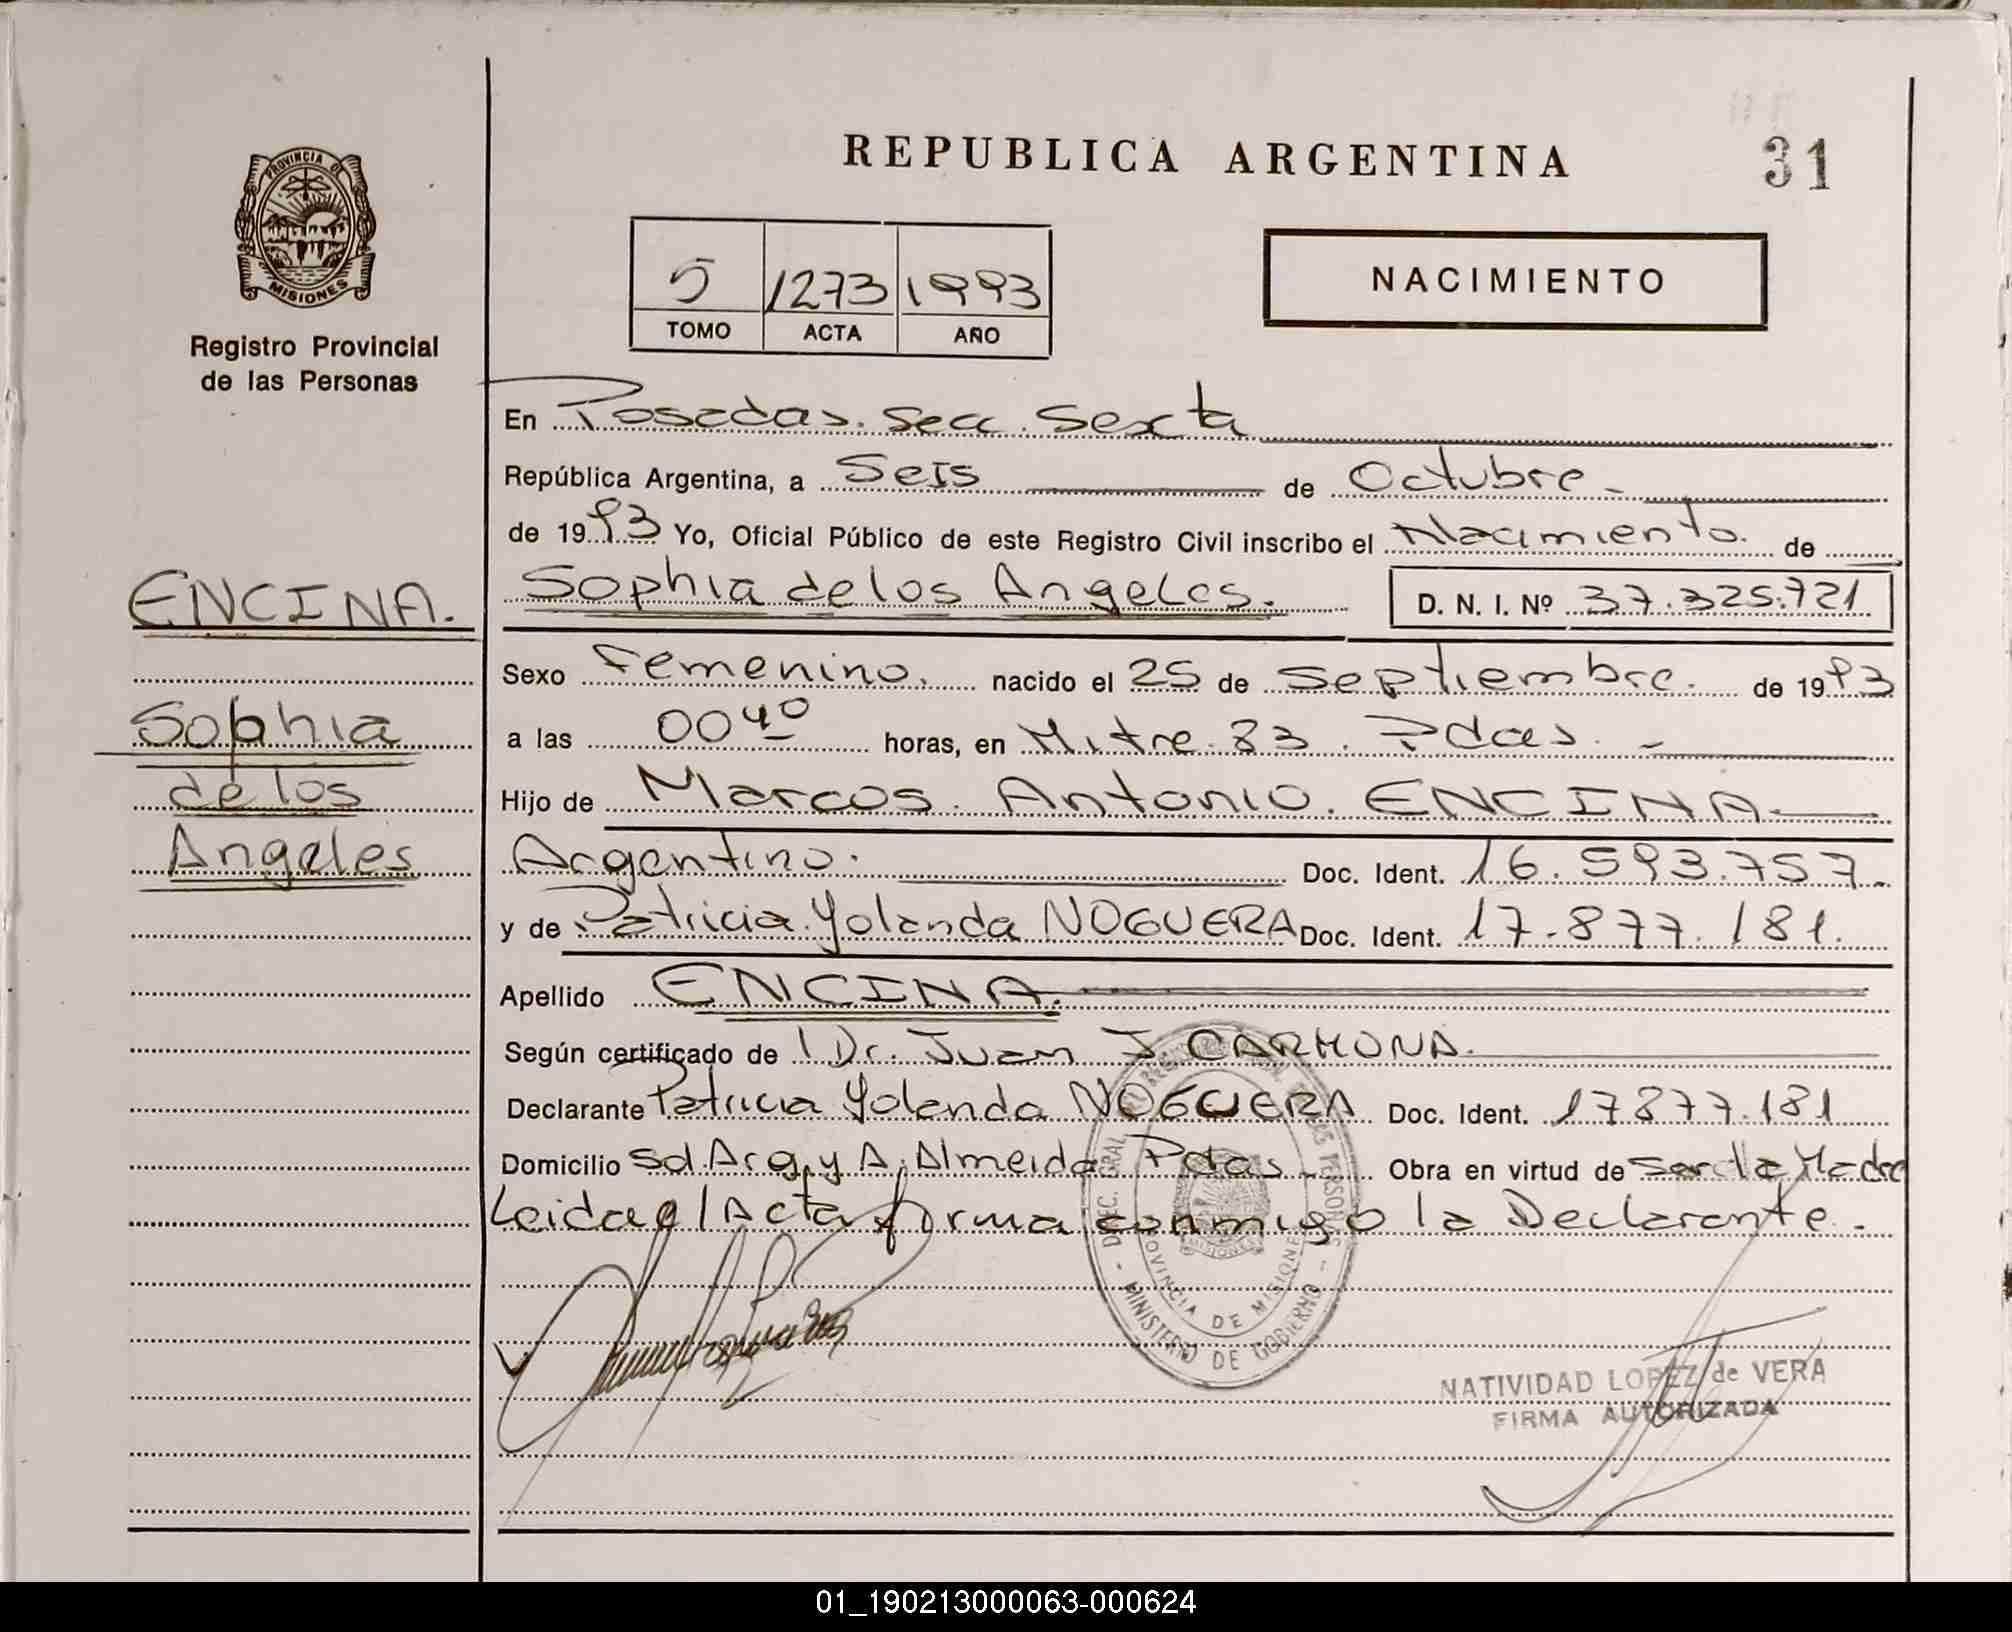 REPUBLICA ARGENTINA
31
PROVINCIA DE
MISIONES
Registro Provincial
de las Personas
5 1273 1993
TOMO ACTA AÑO
NACIMIENTO
En Posadas. Secc. Sexta
República Argentina, a Seis de Octubre
de 1993 Yo, Oficial Público de este Registro Civil inscribo el Nacimiento de
Sophia de los Angeles. D. N. I. Nº 37.325.721
ENCINA.
Sophia
de los
Angeles
Sexo Femenino. nacido el 25 de Septiembre. de 1993
a las 00 40 horas, en Mitre 83. Pdas.
Hijo de Marcos Antonio ENCINA
Argentino. Doc. Ident. 16.593.757.
y de Patricia Yolanda NOGUERA Doc. Ident. 17.877.181.
Apellido ENCINA.
Según certificado de Dr. Juan J. CARMONA.
Declarante Patricia Yolanda NOGUERA Doc. Ident. 17877.181
Domicilio Sd. Arg. y A. Almeida Pdas Obra en virtud de Ser la Madre
Leida e/ Acta firma conmigo la Declarante.
PROVINCIA DE MISIONES
MINISTERIO DE GOBIERNO
NATIVIDAD LOPEZ de VERA
FIRMA AUTORIZADA
01_190213000063-000624